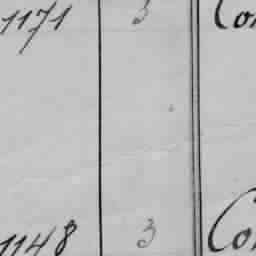 1171 3 Con
1148 3 Con